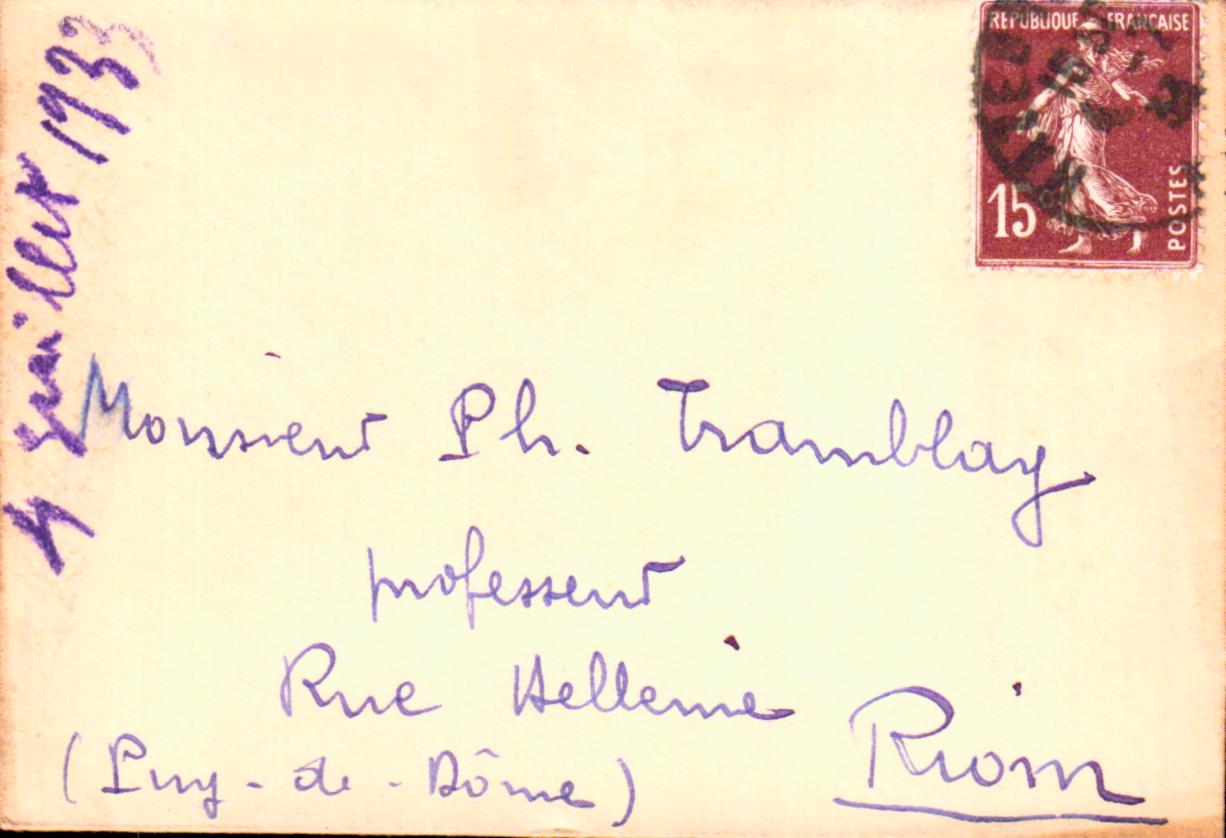 4 Juillet 1933
REPUBLIQUE FRANÇAISE
15
POSTES
Monsieur Ph. Tramblay
professeur
Rue Hellenie
Riom
(Puy-de-Dôme)